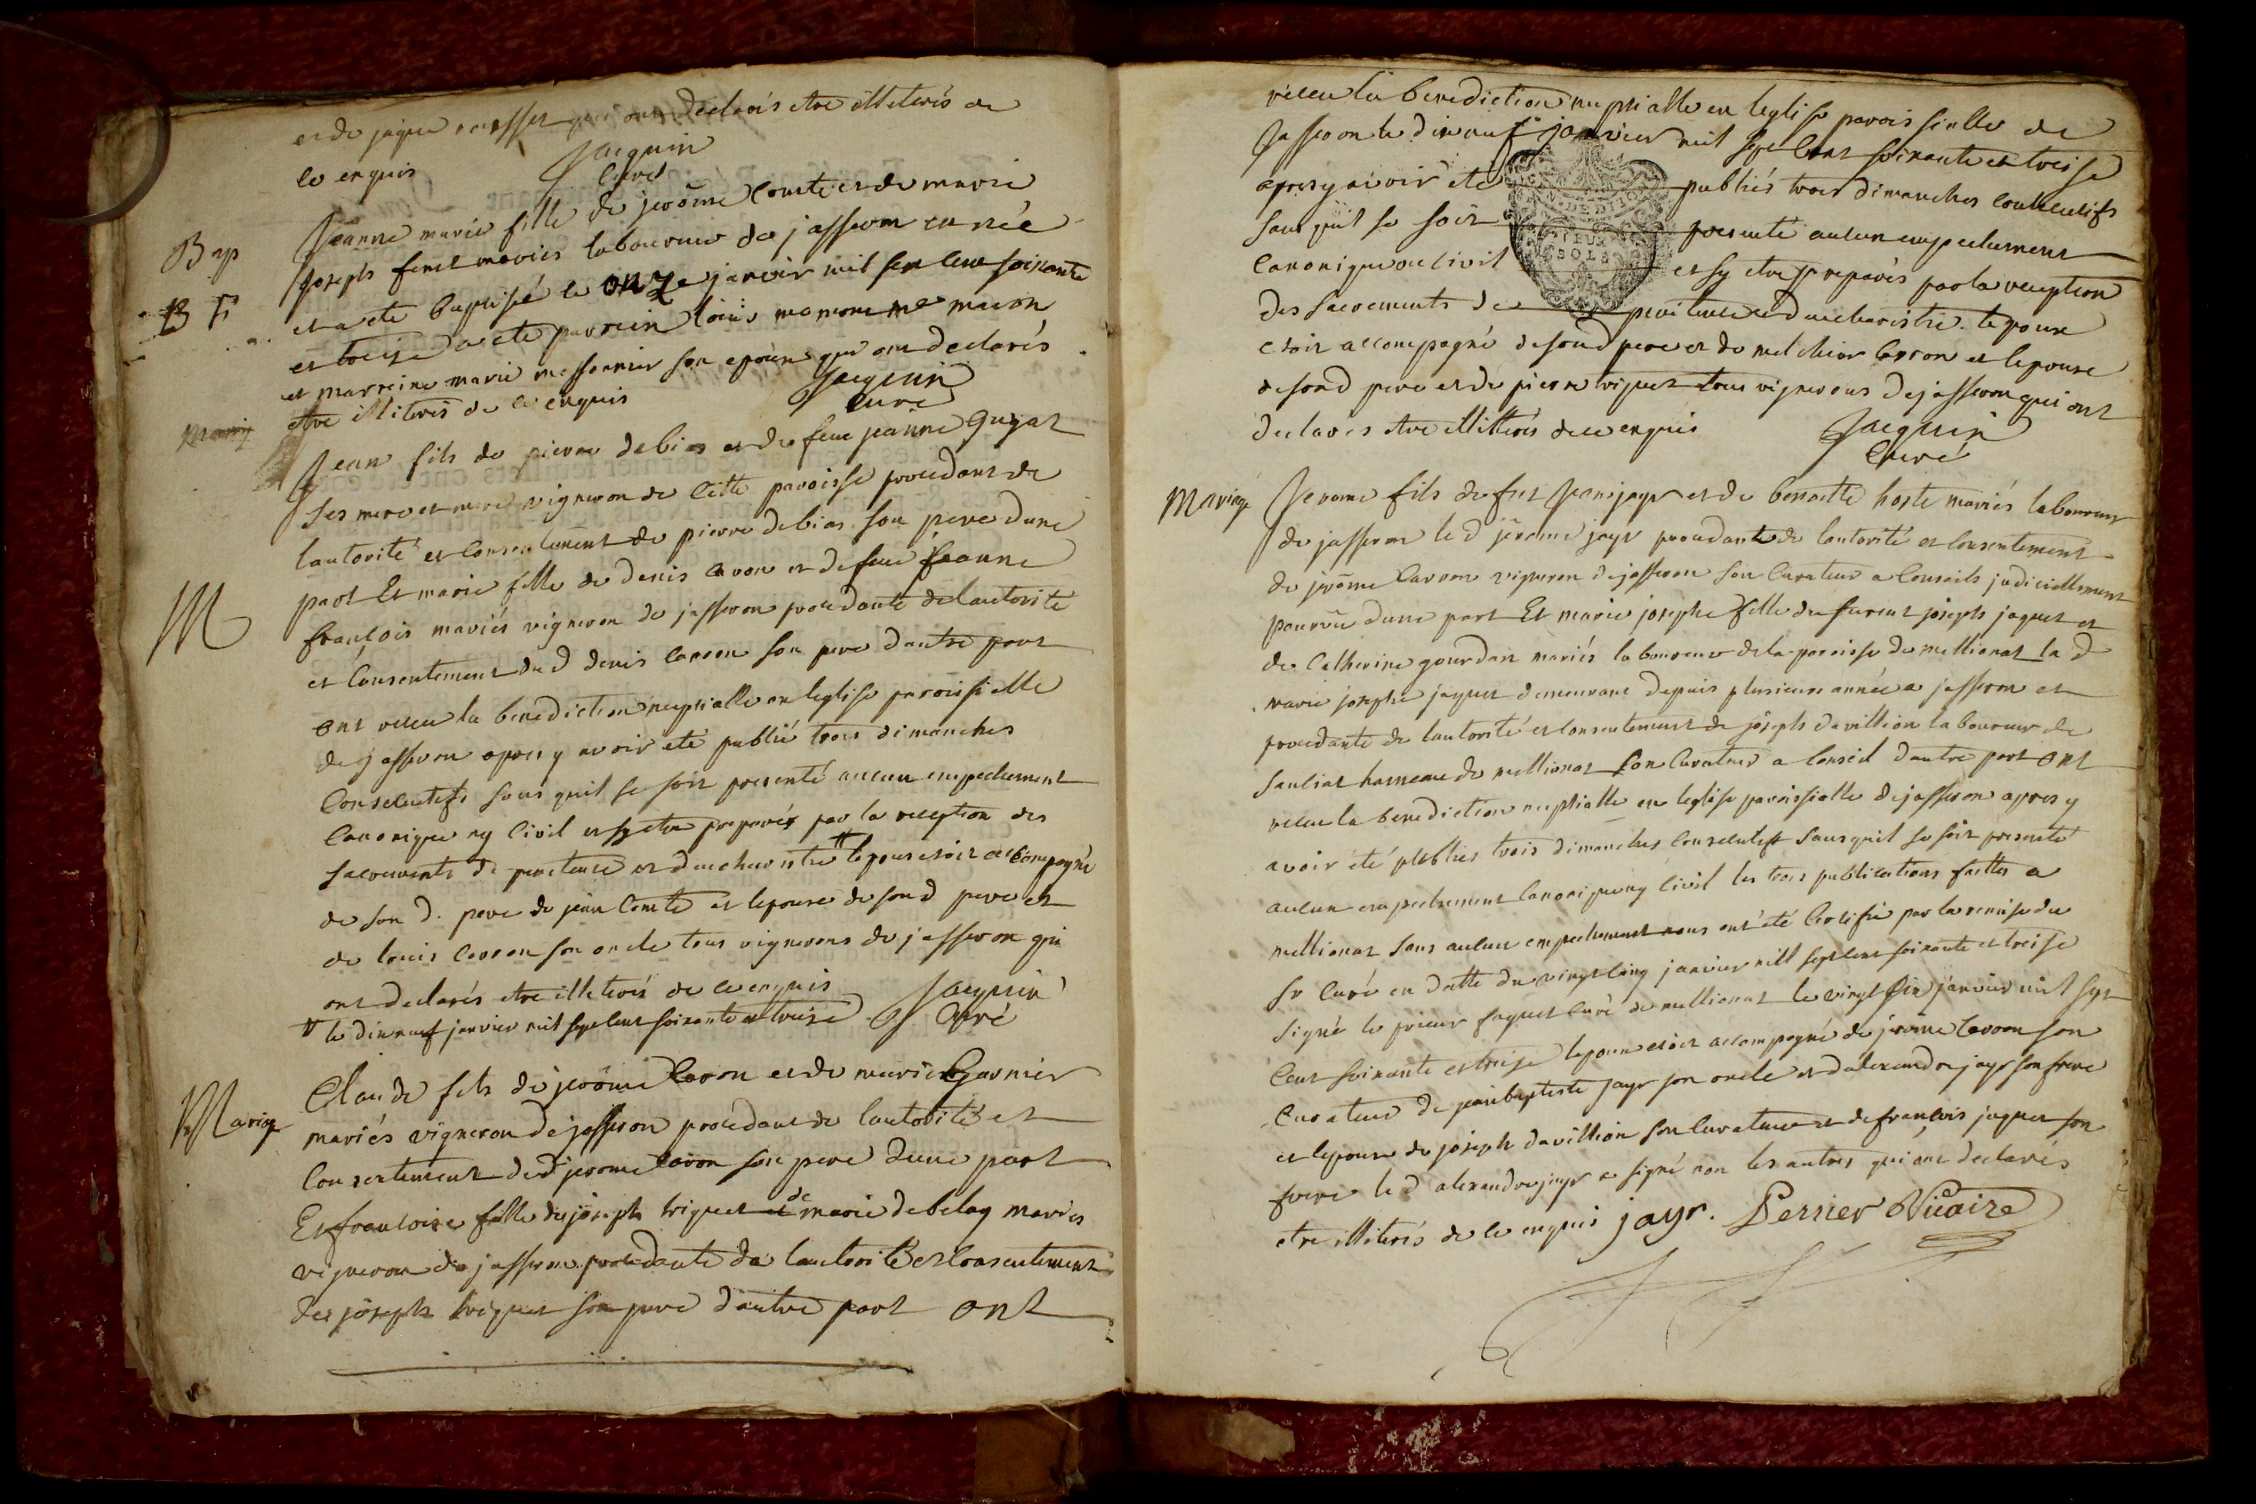 et de jaque qui ont declarés etre illiterés de
ce enquis Jacquin
Curé
Bap
Jeanne marie fille de jerôme comte et de marie
joseph feret mariés laboureur de jasseron est née
B F
et a eté baptisé le onze janvier mil sept cent soixante
et treise a eté parrein loüis maron
et marreine marie son epouse qui ont declarés
etre illiterés de ce enquis Jacquin
curé
Mariag
Jean fils de pierre debias et de feue jeanne guyat
ses mere et vigneron de cette paroisse procedant de
lautorité et consentement de pierre debias son pere dune
part Et marie fille de denis caron et de feüe jeanne
M
françois mariés vigneron de jasseron procedante de lautorité
et consentement dud denis carron son pere dautre part
ont receu la benediction nuptialle en leglise paroissielle
de jasseron apres y avoir eté publié trois dimanches
consecutifs sans quil se soit presenté aucun empechement
canonique ny civil et sy etre preparés par la reception des
sacrements de penitence et deucharistie # lepoux etoit accompagné
de son d. pere de jean comte et lepouse de son d pere et
de loüis carron son oncle tous vignerons de jasseron qui
ont declarés etre illiterés de ce enquis Jacquin
# le dixneuf janvier mil sept cent soixante et treise. Curé
Mariage
Claude fils de jerôme Caron et de marie Garnier
mariés vigneron de jasseron procedant de lautorité et
consentement dud jerome caron son pere dune part
Et francoise fille de joseph briquet et de marie debelay mariés
vigneron de jasseron procedante de lautorité et consentement
de joseph briquet son pere dautre part ont
receu la benediction nuptialle en leglise paroissielle de
Jasseron le dixneuf janvier mil sept cent soixante et treise
apres y avoir eté publiés trois dimanches consecutifs
sans quil se soit presenté aucun empechement
canonique ou civil et sy etre preparés par la reception
des sacrements de penitence et deucharistie. lepoux
etoit accompagné de son d pere et de melchior carron et lepouse
de son d pere et de pierre briquet tous vignerons de jasseron qui ont
declarés etre illiterés de ce enquis Jacquin
Curé
Mariage
Jerome fils de feu jean jayr et de benoitte hoste mariés laboureur
de jasseron le d jerôme jayr procedant de lautorité et consentement
de jerôme carron vigneron de jasseron son curateur a conseils judiciellement
pourvû dune part Et marie josephe fille de furent joseph jaquet et
de catherine gourdan mariés laboureur de la paroisse de mellionat la d
marie josephe jaquet demeurant depuis plusieurs année a jasseron et
procedante de lautorité et consentement de joseph davillion laboureur de
sanciat hameau de mellionat son curateur a conseil dautre part ont
receu la benediction nuptialle en leglise paroissialle de jasseron apres y
avoir eté publiés trois dimanches consecutifs sans quil se soit presenté
aucun empechement canonique ny civil les trois publications faittes a
mellionat sans aucun empechement nous ont été certifié par la remise du
Sr curé en datte du vingt cinq janvier mill sept cent soixante et treise
signé le prieur curé de mellionat le vingt six janvier mil sept
cent soixante et treise lepoux etoit accompagné de jerome carron son
curateur de jean baptiste jayr son oncle et dalexandre jayr son frere
et lepouse de joseph davillion son curateur et de francois jaquet son
frere le d alexandre jayr a signé non les autres qui ont declarés
etre illiterés de ce enquis jayr. Perrier Vicaire